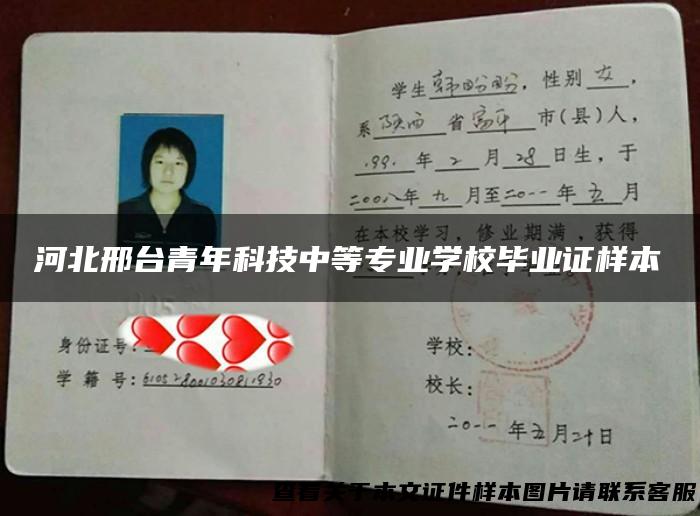 学生韩盼盼，性别女，
系陕西省富平市(县)人，
1991年2月28日生，于
二00八年九月至二0一一年五月
在本校学习，修业期满，获得
河北邢台青年科技中等专业学校毕业证样本
身份证号：
学籍号：610528001030811930
学校：
校长：
二0一一年五月二十日
查看关于本文证件样本图片请联系客服